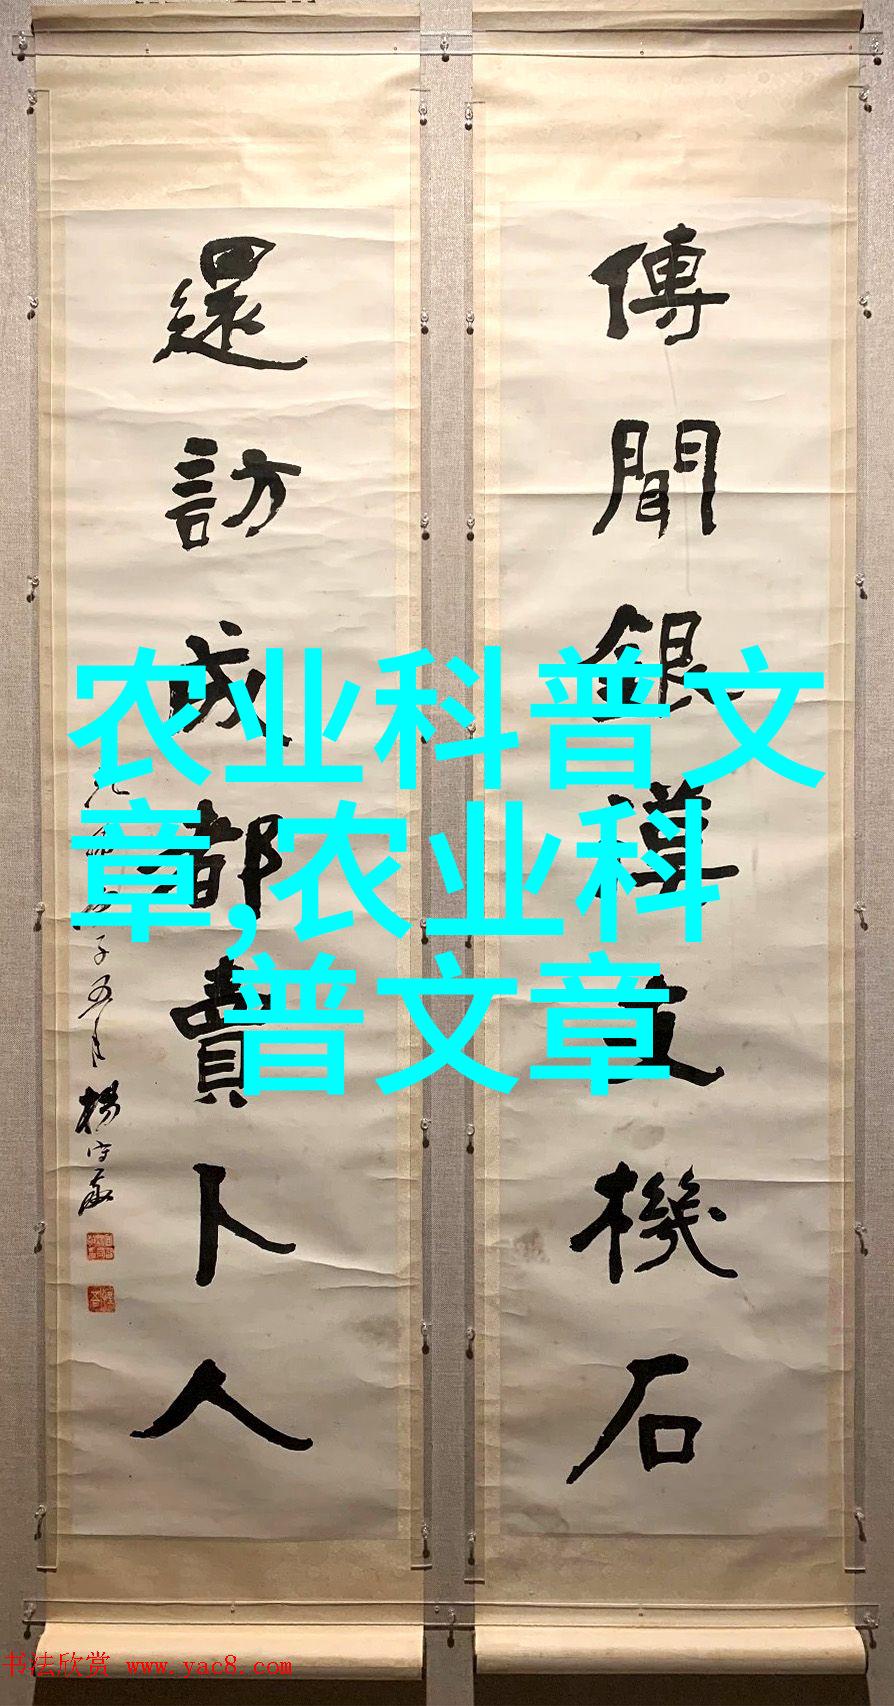 傳聞銀漢支機石
還訪成都賣卜人
楊守敬
农业科普文
章,农业科
普文章
书法欣赏 www.yac8.com